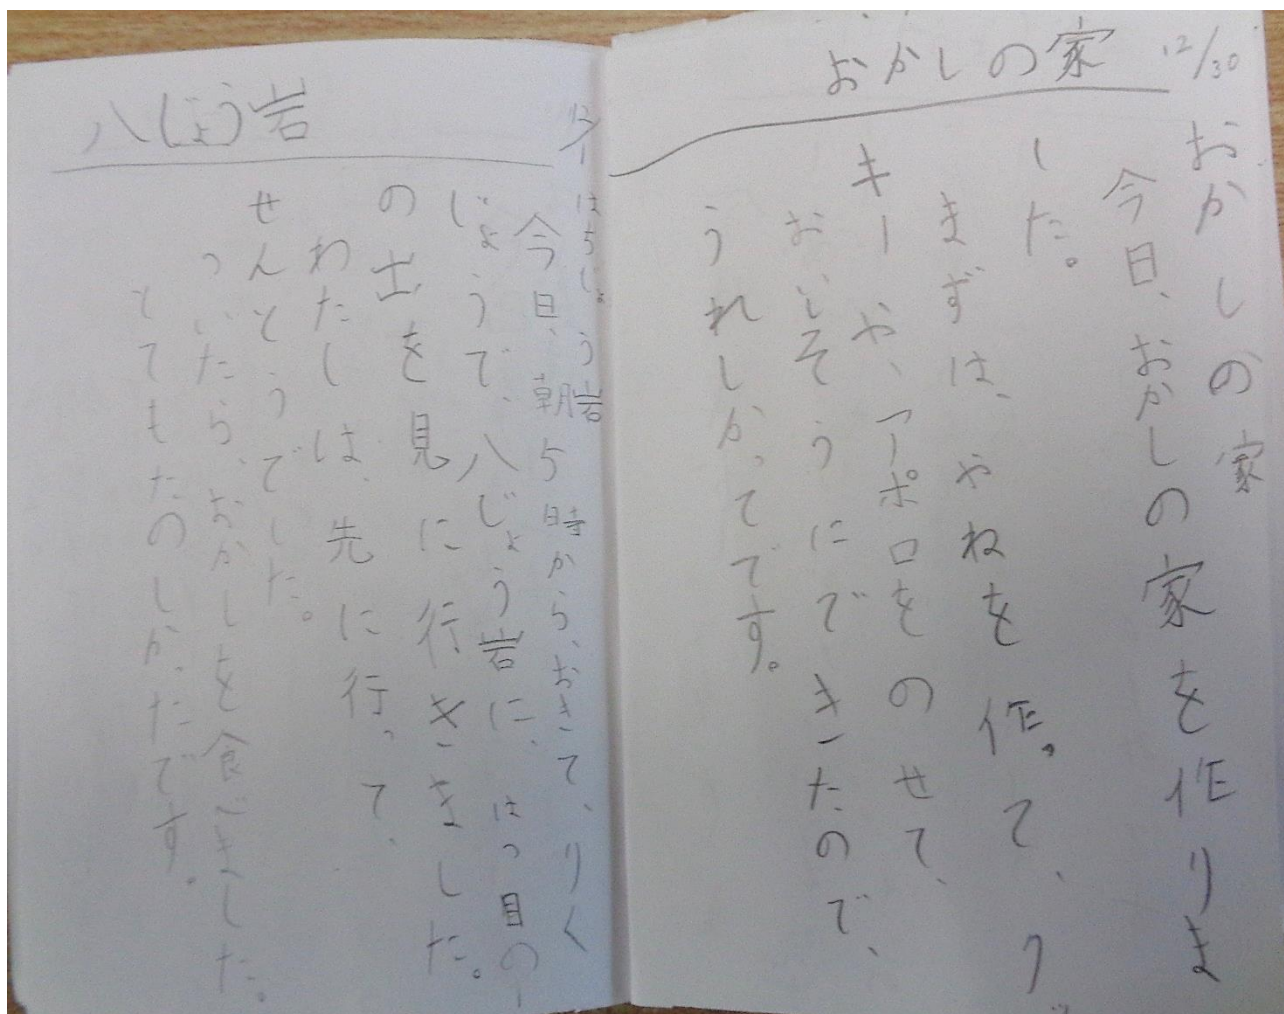 12/30
おかしの家
おかしの家
今日、おかしの家を作りま
した。
まずは、やねを作って、ク
キーや、アポロをのせて、
おいしそうにできたので、
うれしかってです。
12/1
八じょう岩
はちじょう岩
今日、朝5時から、おきて、りく
じょうで、八じょう岩に、はつ目の
の出を見に行きました。
わたしは、先に行って、
せんとうでした。
ついたら、おかしを食べました。
とてもたのしかったです。